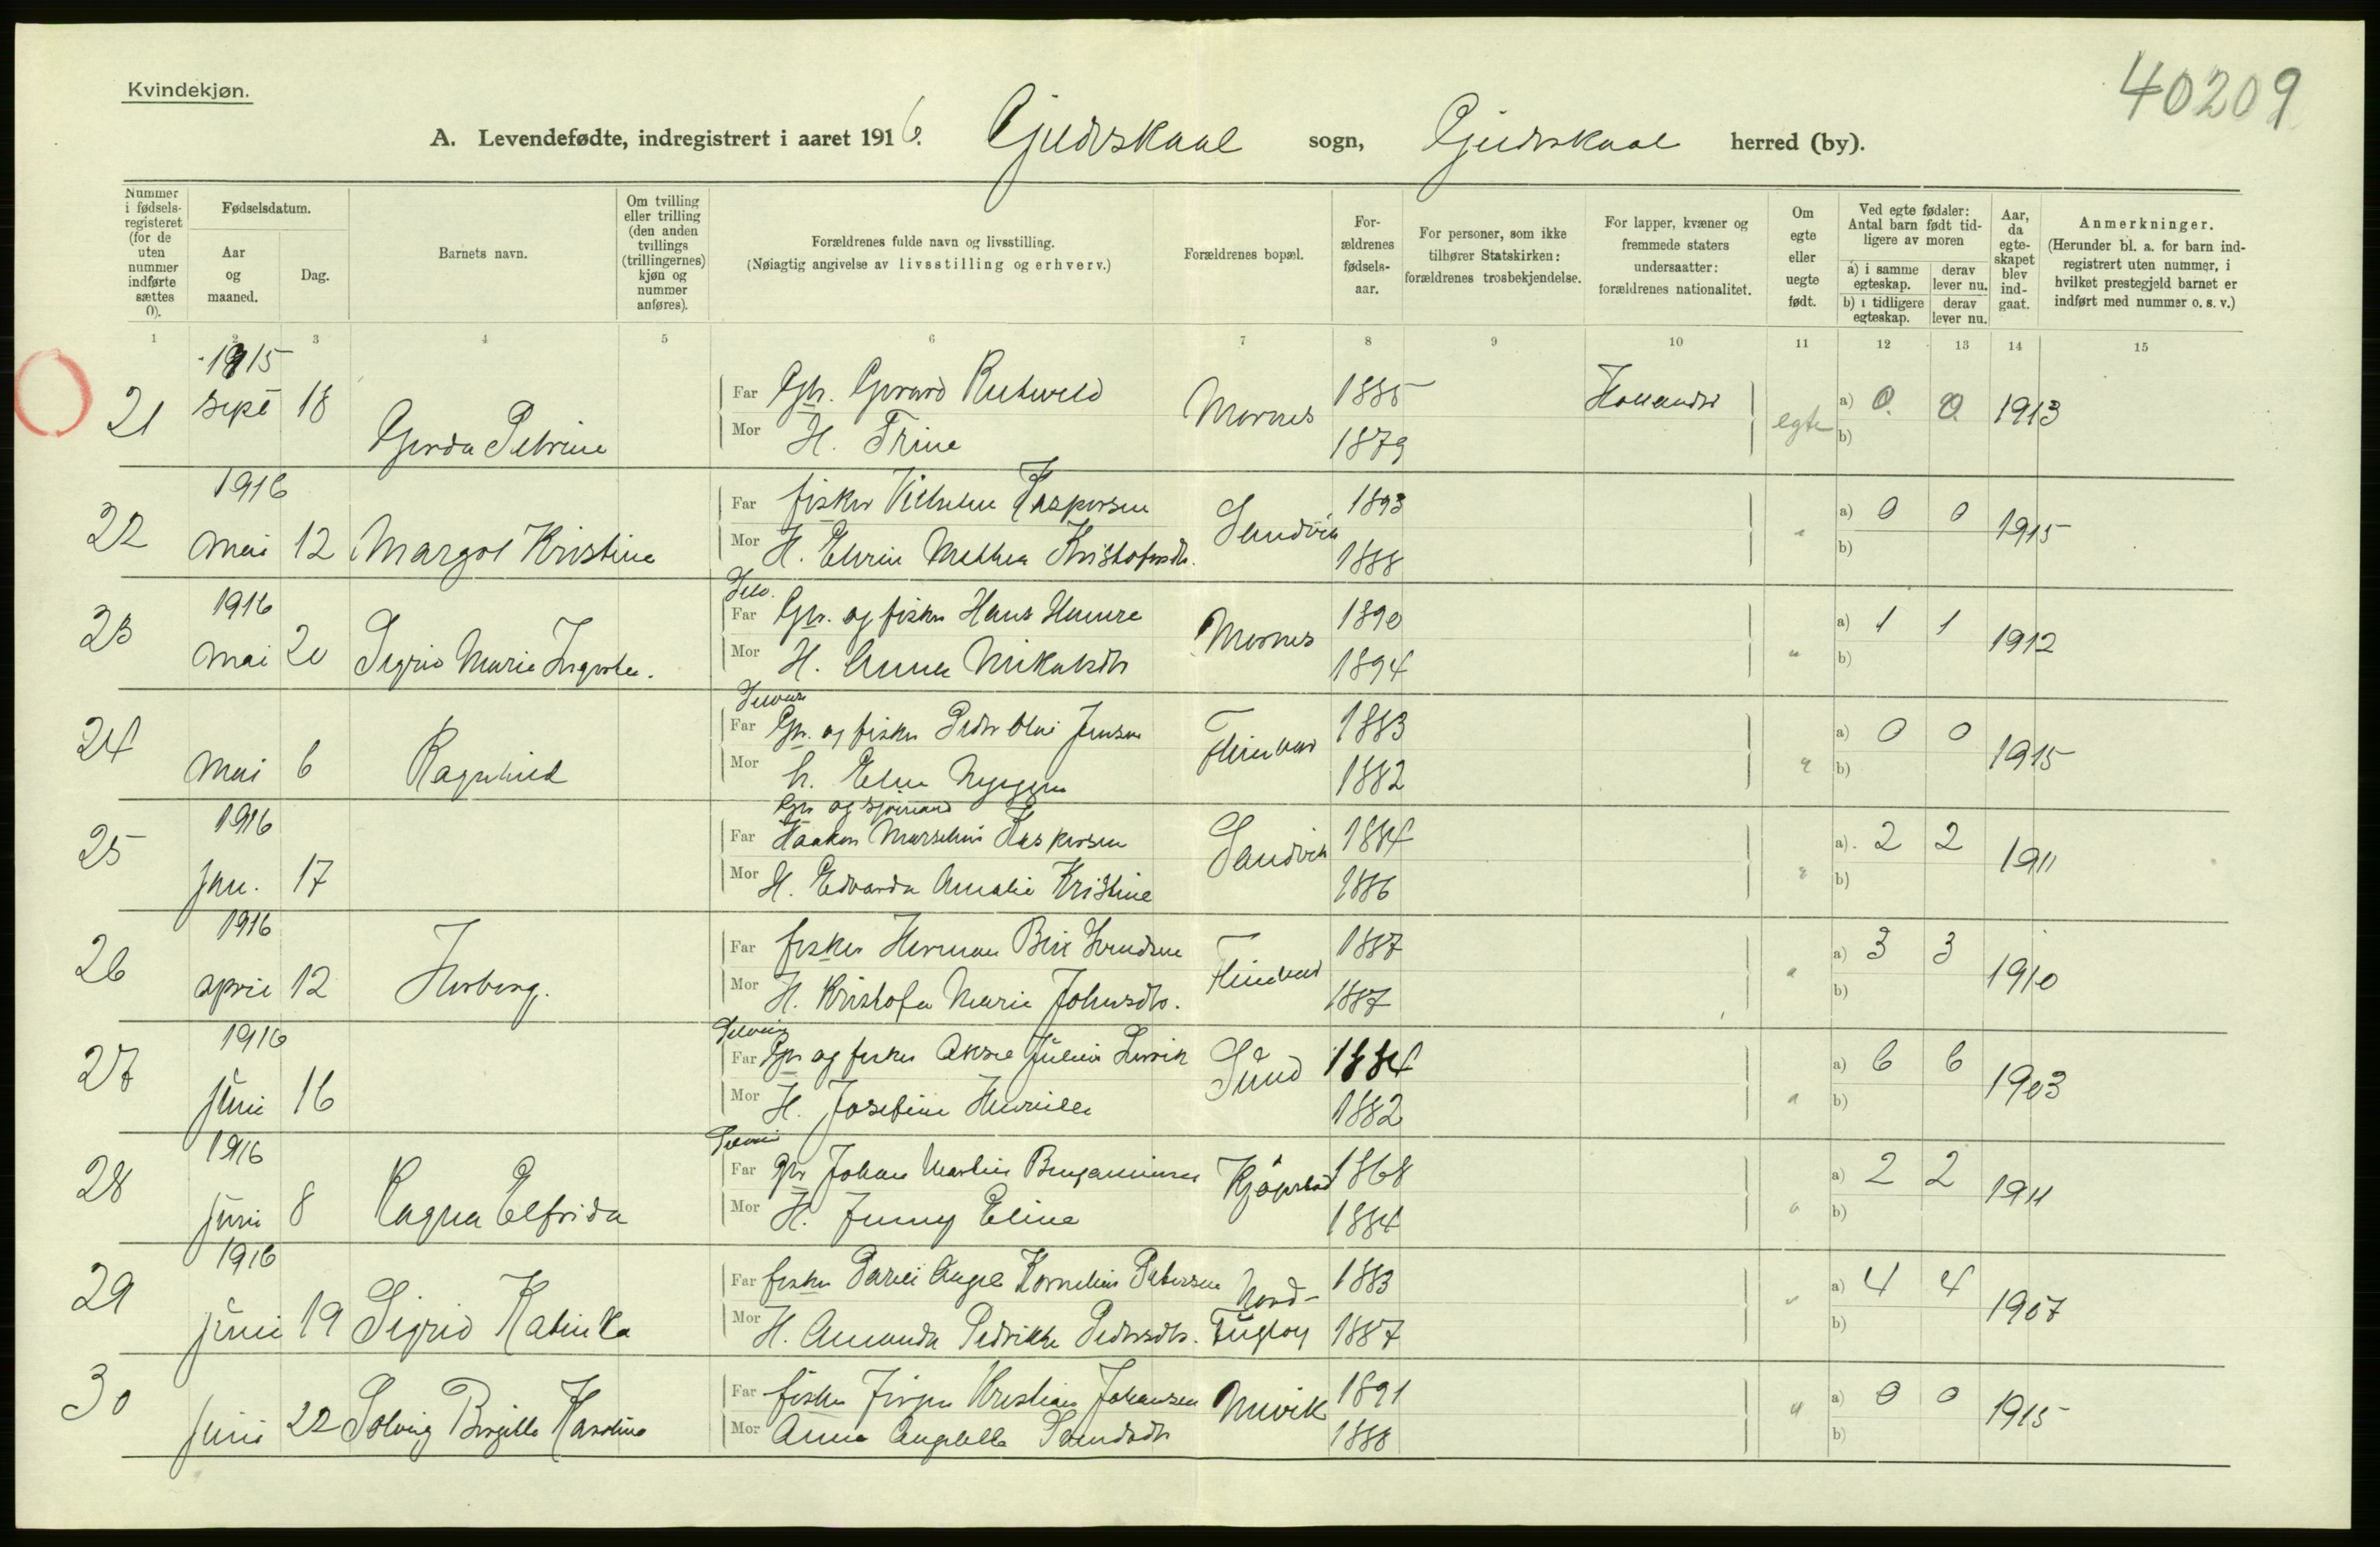 Kvindekjøn.
40209
A. Levendefødte, indregistrert i aaret 1916. Gjeldrskaal sogn, Gjeldrskaal herred (by).
Nummer i fødsels-registeret (for de uten nummer indførte sættes 0).
Fødselsdatum.
Aar og maaned.
Dag.
Barnets navn.
Om tvilling eller trilling (den anden tvillings (trillingernes) kjøn og nummer anføres).
Forældrenes fulde navn og livsstilling.
(Nøiagtig angivelse av livsstilling og erhverv.)
Forældrenes bopæl.
For-ældrenes fødsels-aar.
For personer, som ikke tilhører Statskirken: forældrenes trosbekjendelse.
For lapper, kvæner og fremmede staters undersaatter: forældrenes nationalitet.
Om egte eller uegte født.
Ved egte fødsler: Antal barn født tid-ligere av moren
a) i samme egteskap.
derav lever nu.
b) i tidligere egteskap.
derav lever nu.
Aar, da egte-skapet blev ind-gaat.
Anmerkninger.
(Herunder bl. a. for barn ind-registrert uten nummer, i hvilket prestegjeld barnet er indført med nummer o. s. v.)
1 2 3 4 5 6 7 8 9 10 11 12 13 14 15
1915
21 sept 18 Gerda Petrine Far Gbr. Gerard 1885 Hollandsk egte a) 0 0 1913
Mor H. Trine Mornes 1879 b)
1916
22 mai 12 Margot Kristine Far fisker Vilhelm Kaspersen Sandvik 1893 " a) 0 0 1915
Mor H. Elvine Mathea Kristofersdtr. 1888 b)
Selv.
1916
23 mai 20 Sigrid Marie Ingvarda. Far Gbr. og fisker Hans Hamre Mornes 1890 " a) 1 1 1912
Mor H. Anna Mikalsdtr 1894 b)
Selveier
24 mai 6 Ragnhild Far Gbr. og fisker Peder Olai Jensen 1883 " a) 0 0 1915
Mor h. Eline 1882 b)
Gbr og sjømand
1916
25 jan. 17 Far Haakon Marselius Kaspersen Sandvik 1884 " a) 2 2 1911
Mor H. Edvarda Amalie Kristine 1886 b)
1916
26 april 12 Herborg. Far fisker Herman Berg 1887 " a) 3 3 1910
Mor H. Kristofa Marie Johnsdtr. 1887 b)
Selveier
1916
27 juni 16 Far Gbr og fisker Aksel Julius Sund 1884 " a) 6 6 1903
Mor H. Josefine 1882 b)
Selveier
1916
28 juni 8 Ragna Elfrida Far Gbr Johan Martin Benjaminsen 1868 " a) 2 2 1911
Mor H. Jenny Eline 1884 b)
1916
29 juni 19 Sigrid Katinka Far fisker Kornelius Petersen Nord- 1883 " a) 4 4 1907
Mor H. Amanda Pedrikke Pedersdtr. Fugløy 1887 b)
30 juni 22 Solveig Bergitte Karoline Far fisker Jørgen Kristian Johansen 1891 " a) 0 0 1915
Mor Anna 1888 b)